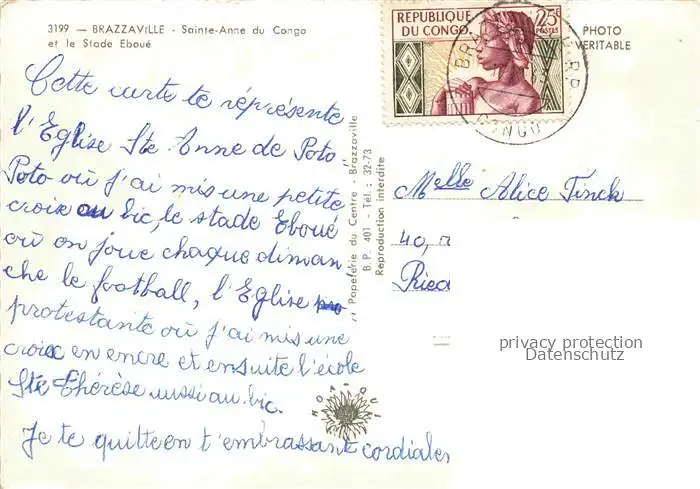 3199 — BRAZZAVILLE - Sainte-Anne du Congo
et le Stade Eboué
Cette carte te représente
l'Eglise Ste Anne de Poto
Poto où j'ai mis une petite
croix au bic, le stade Eboué
où on joue chaque diman
che le football, l'Eglise
protestante où j'ai mis une
croix en encre et ensuite l'école
Ste Thérèse aussi au bic.
Je te quitte en t'embrassant cordialem
HOA-QUI
" Papeterie du Centre - Brazzaville
B.P. 401 - Tél. : 32-73
Reproduction interdite
REPUBLIQUE
DU CONGO
25F
POSTES
CONGO
PHOTO
VERITABLE
Melle Alice Finck
40,
Ried
privacy protection
Datenschutz